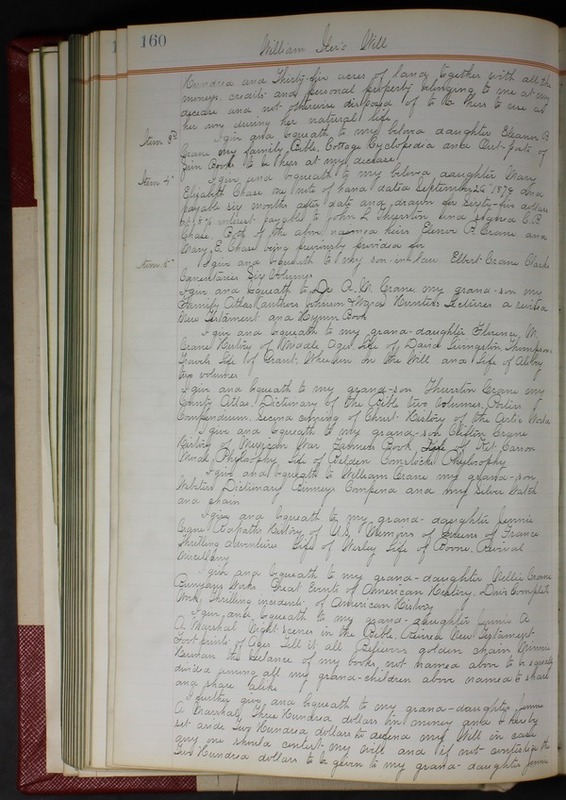 160
William Iler's Will
Hundred and Thirty-five acres of land together with all the
moneys credits and personal property belonging to me at my
decease and not otherwise disposed of to be hers to use as
her own during her natural life
Item 3d I give and bequeath to my beloved daughter Eleanor P.
Crane my family Bible, Cottage Cyclopedia and Foot-prints of
Books to be hers at my decease
Item 4th I give and bequeath to my beloved daughter Mary
Elizabeth Chase one note of hand dated September 26 1879 and
payable six months after date and drawn for Sixty-five dollars
8% interest payable to John L. Thurston and signed C. B.
Chase. Both of the above named heirs Elenor P. Crane and
Mary E. Chase being previously provided for
Item 5th I give and bequeath to my son-in-law Elbert Crane Clarks
Comentaries Six Volumes
I give and bequeath to A. M. Crane my grand-son my
Family Atlas (authors Johnson & Ward) Hunters Lectures a revised
New Testament and Hymn Book
I give and bequeath to my grand-daughter Florence M.
Crane History of Middle Ages Life of David Livingston Thompson
Travels Life of Grant, Wheedon on the Will and Life of
two volumes
I give and bequeath to my grand-son Thurston Crane my
County Atlas, Dictionary of the Bible two Volumes, Porters
Compendium, Second coming of Christ History of the
I give and bequeath to my grand-son Clifton Crane
History of Mexican War Farmers Book, Life of Kit Carson
Mental Philosophy Life of Belden Comstocks Philosophy
I give and bequeath to William Crane my grand-son
Websters Dictionary Binneys Compend and my Silver Watch
and chain
I give and bequeath to my grand-daughter Jennie
Crane History of U.S. Memoirs of Queens of France
Thrilling Adventures Life of Wesley Life of Boone, Revival
Miscellany
I give and bequeath to my grand-daughter Nellie Crane
Bunyans Works. Great Events of American History, Dicks Complete
Works, Thrilling incidents of American History
I give and bequeath to my grand-daughter Jennie A.
A. Marshal Night Scenes in the Bible, Revised New Testament
Foot prints of Ages Tell it all golden chain Minnie
Herman the balance of my books, not named above to be equally
divided among all my grand-children above named to share
and share alike
I further give and bequeath to my grand-daughter Jennie
A. Marshall Three Hundred dollars in money and I hereby
set aside Two Hundred dollars to defend my Will in case
any one should contest my will and if not contested the
Two Hundred dollars to be given to my grand-daughter Jennie